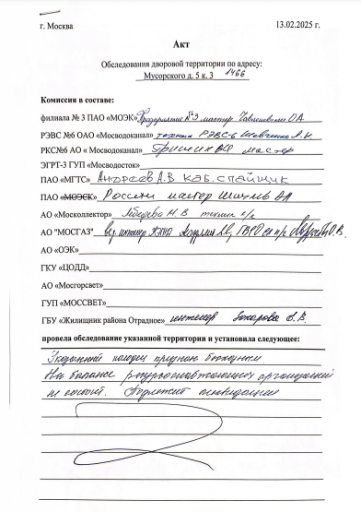 г. Москва 13.02.2025 г.
Акт
Обследования дворовой территории по адресу:
Мусорского д. 5 к. 3 1466
Комиссия в составе:
филиала № 3 ПАО «МОЭК» Предприятие №3 мастер
РЭВС №6 ОАО «Мосводоканал» техник РЭВС-6 Шевченко А.Н.
РКС№6 АО « Мосводоканал» мастер
ЭГРТ-3 ГУП «Мосводосток»
ПАО «МГТС» Андреев А.В каб. спайщик
ПАО «МОЭСК» Россети мастер
АО «Москоллектор» Лебедева Н.В. техник
АО "МОСГАЗ"
АО «ОЭК»
ГКУ «ЦОДД»
АО «Мосгорсвет»
ГУП «МОССВЕТ»
ГБУ «Жилищник района Отрадное» инженер Захарова В.В.
провела обследование указанной территории и установила следующее:
колодец признан
На балансе ресурсоснабжающих организаций
не состоит. Подлежит ликвидации